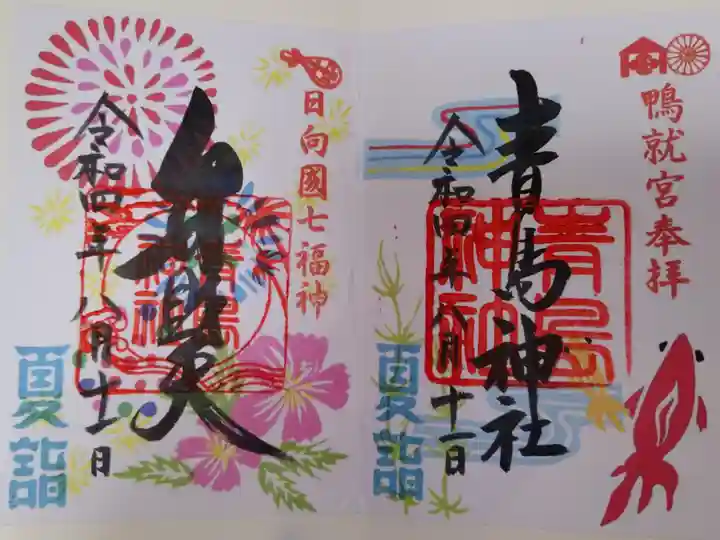 鴨就宮奉拝
青島神社
令和四年八月十一日
夏詣
青島
神社
日向國七福神
弁財天
令和四年八月十一日
夏詣